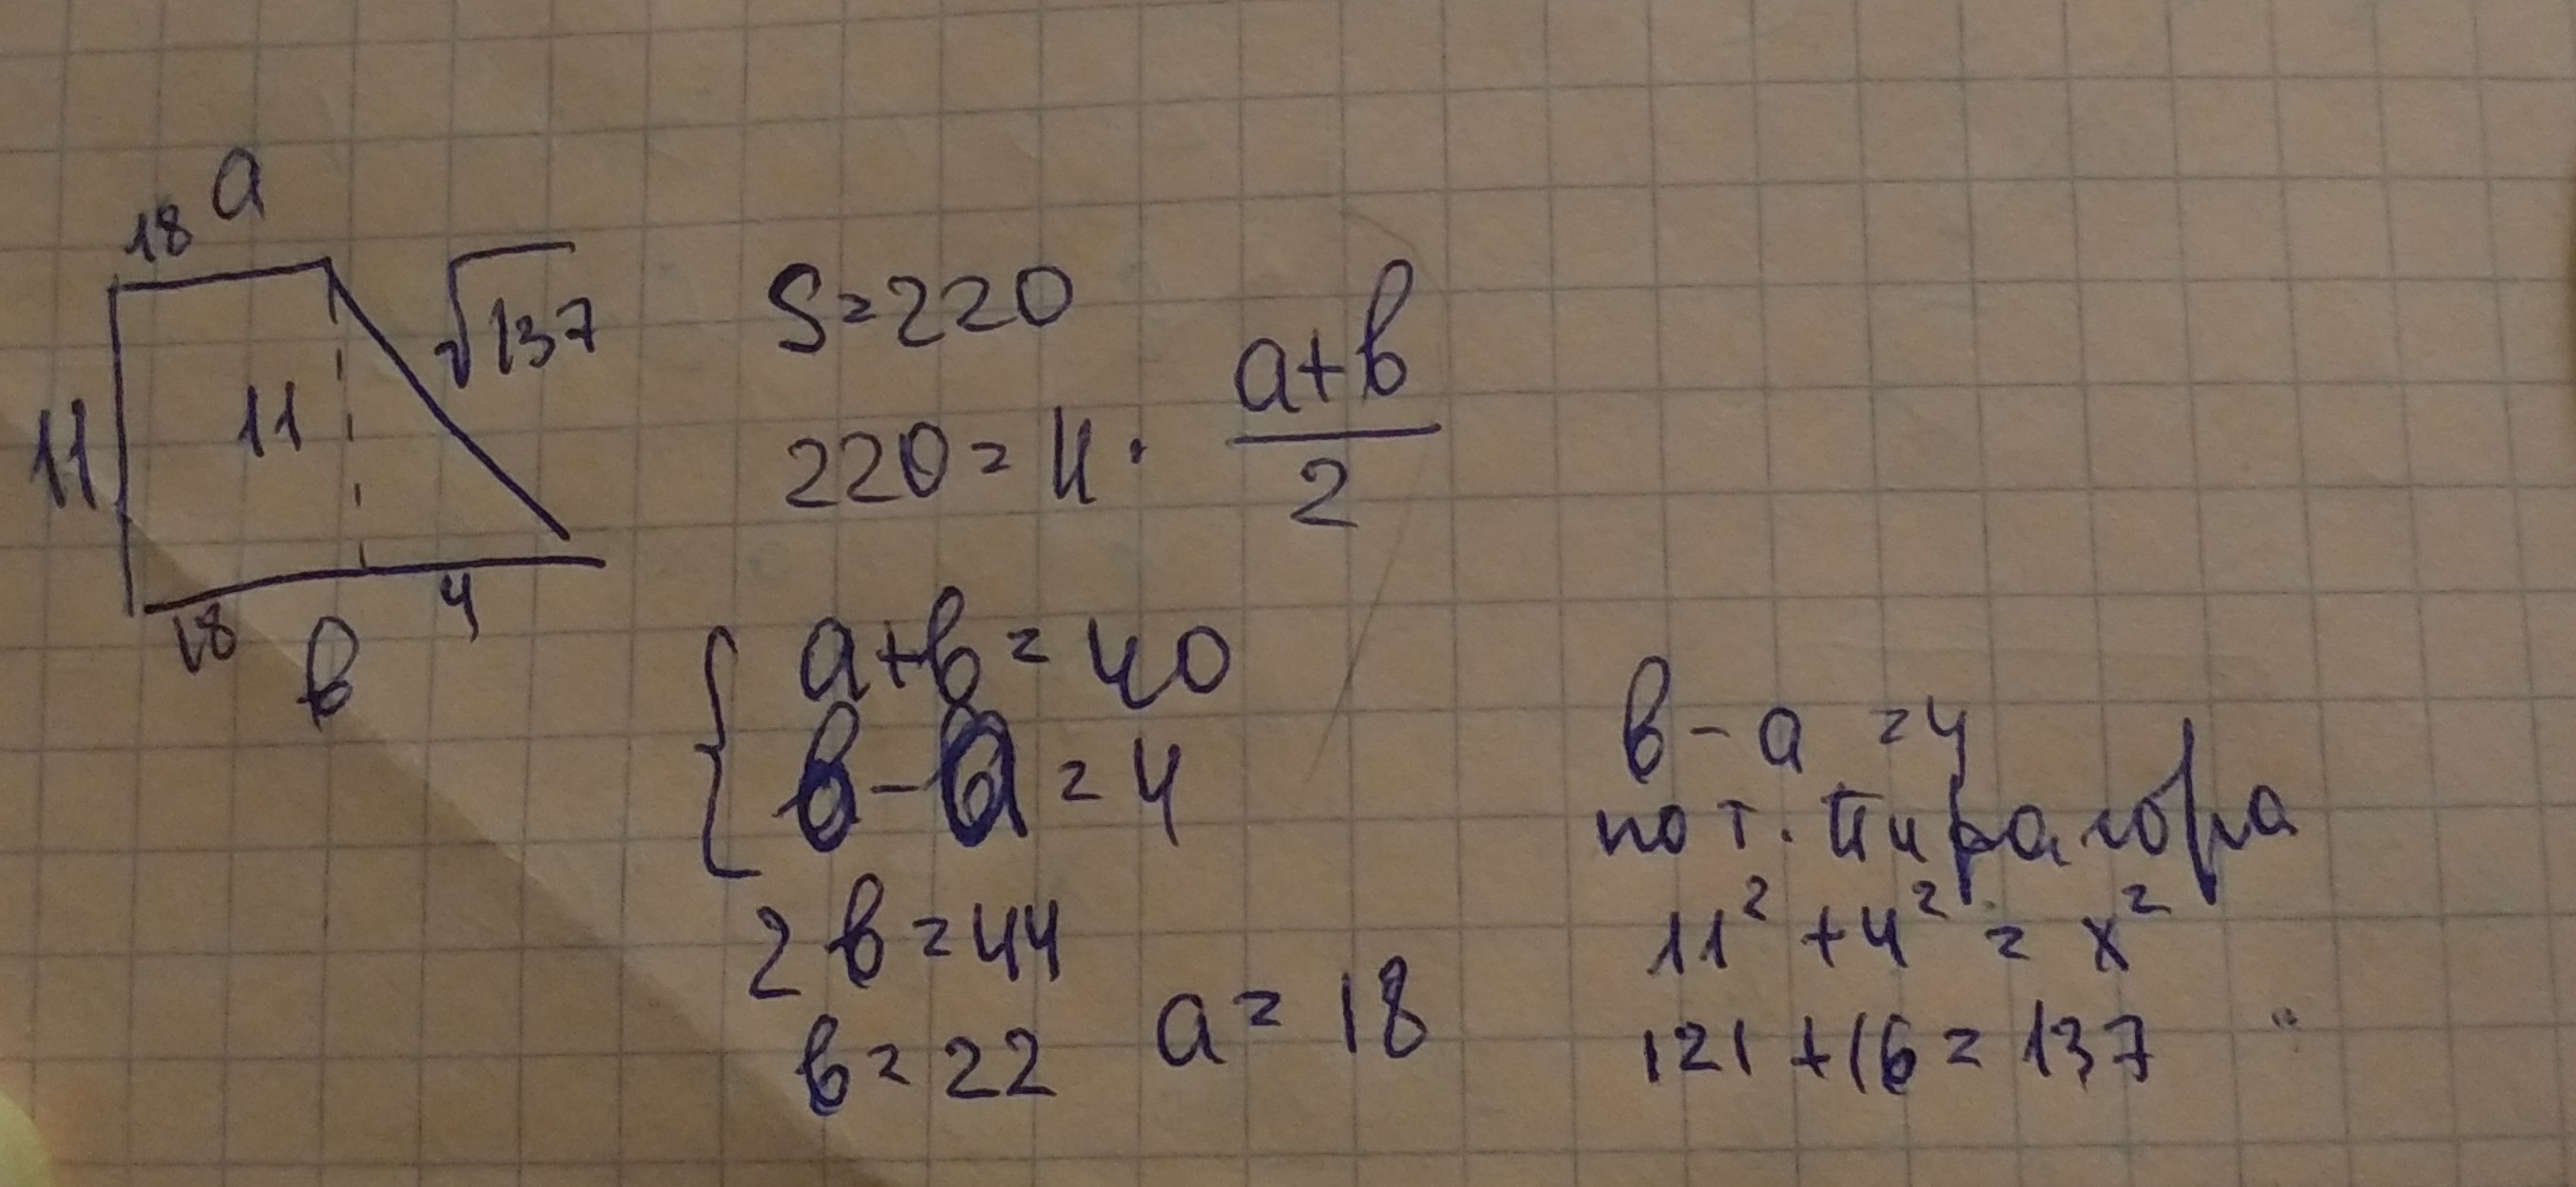 18 a
√137
11
11
18 в 4
S=220
220=11· (a+в)/2
{ a+в=40
в-a=4
2в=44
в=22 a=18
в-a=4
по т. Пифагора
11²+4²=x²
121+16=137